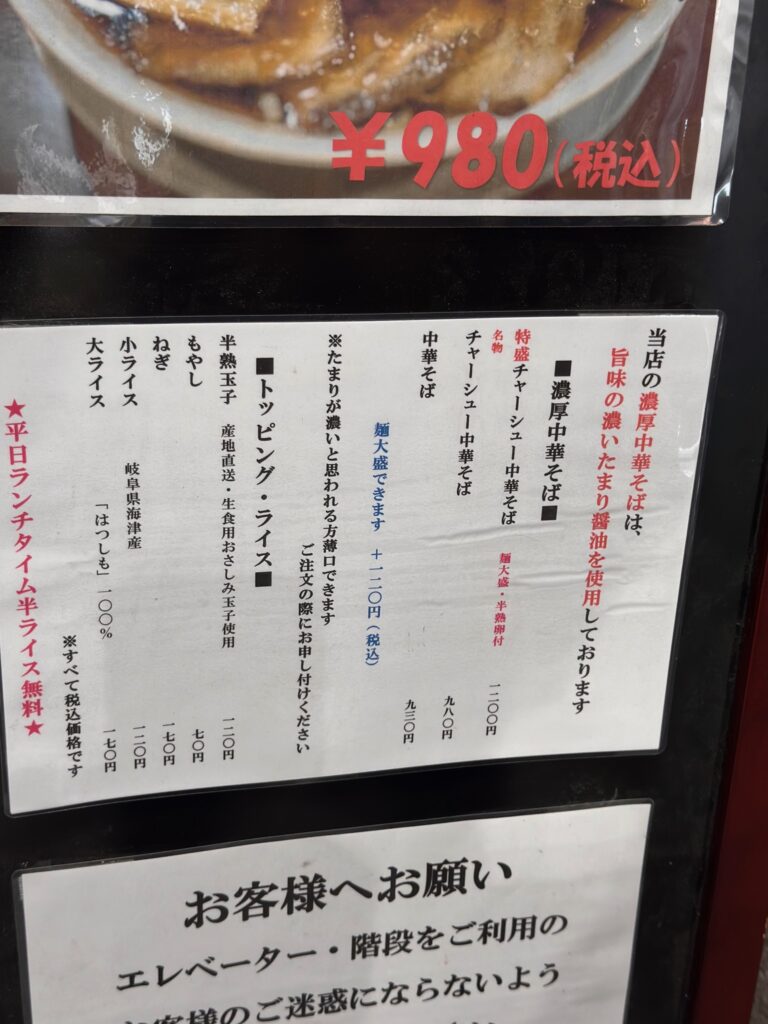 ¥980(税込)
当店の濃厚中華そばは、
旨味の濃いたまり醤油を使用しております
■濃厚中華そば■
特盛チャーシュー中華そば 麺大盛・半熟卵付 一二〇〇円
名物
チャーシュー中華そば 九八〇円
中華そば 九三〇円
麺大盛できます +一二〇円(税込)
※たまりが濃いと思われる方薄口できます
ご注文の際にお申し付けください
■トッピング・ライス■
半熟玉子 産地直送・生食用おさしみ玉子使用 一二〇円
もやし 七〇円
ねぎ 一七〇円
小ライス 岐阜県海津産 一二〇円
大ライス 「はつしも」一〇〇% 一七〇円
※すべて税込価格です
★平日ランチタイム半ライス無料★
お客様へお願い
エレベーター・階段をご利用の
お客様のご迷惑にならないよう